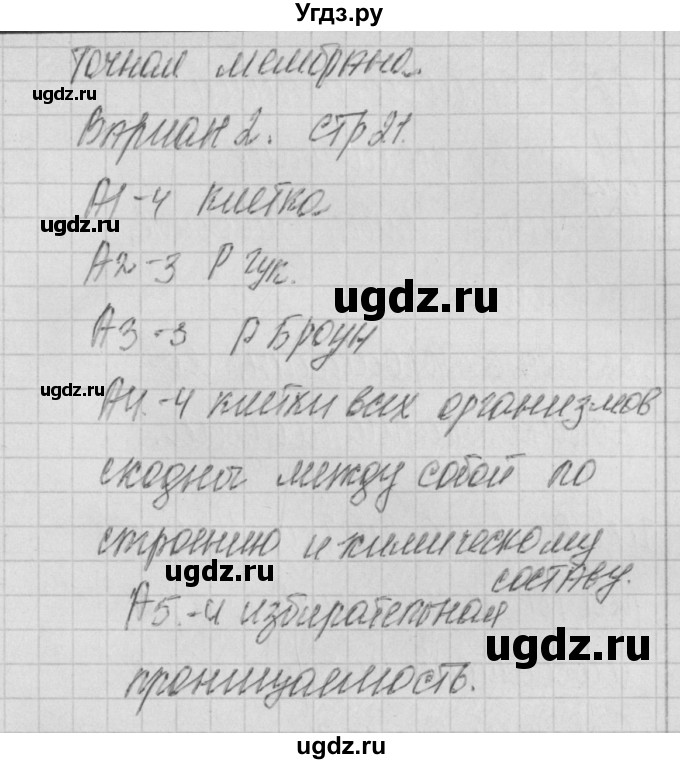 Угдз.ру
точная мембрана.
ugdz.ru
Вариан 2. стр 21.
А1-4 клетка
ugdz.ru
А2-3 Р Гук.
ugdz.ru
А3-3 Р Броун
ugdz.ru
А4.-4 клетки всех организмов
сходны между собой по
строению и химическому
составу.
ugdz.ru
А5.-4 избирательная
ugdz.ru
проницаемость.
ugdz.ru